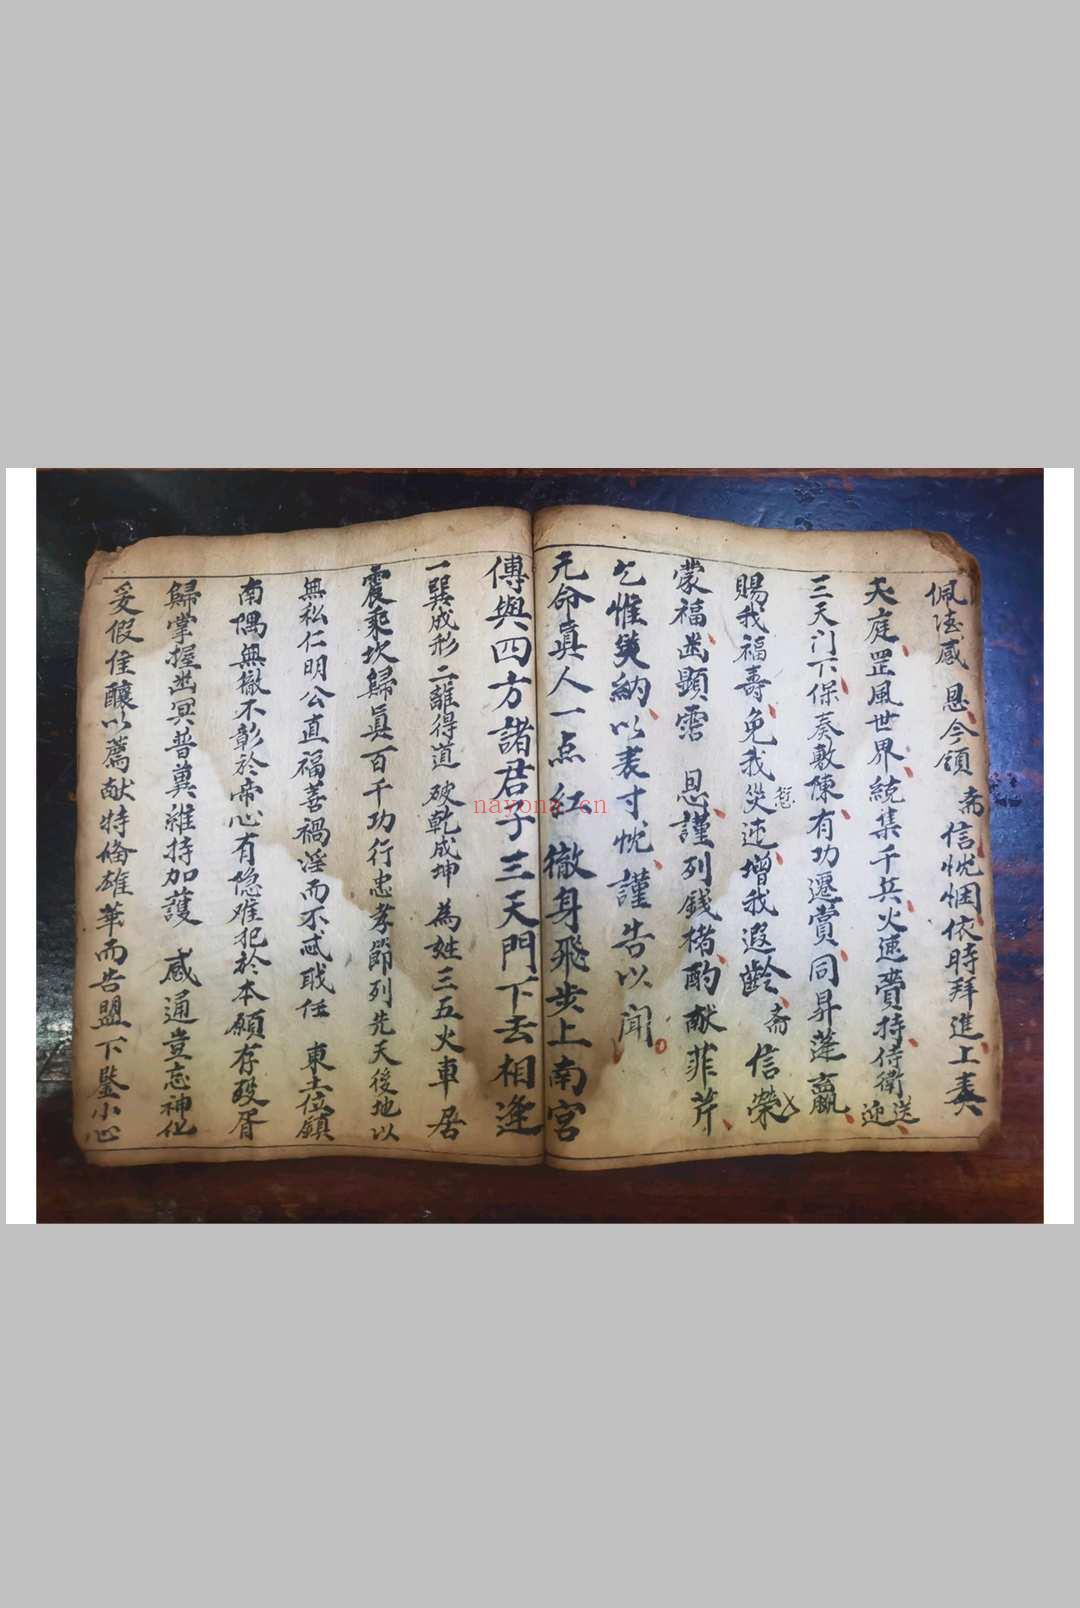 佩德感 恩今領 斋信忱悃依時拜進上奏
天庭罡風世界統集千兵火速賫持侍衛送迎
三天门下保奏敷陳有功遷賞同昇蓬瀛
賜我福壽免我災迍愆增我遐齡斋信榮
蒙福幽顯霑 恩謹列錢楮酌献菲芹
乞惟笑納以表寸忱謹告以聞
元命真人一点红徹身飛步上南宮
傳與四方諸君子三天門下去相逢
一巽成形二離得道 破乾成坤 為姓三五火車居
震乘坎歸真百千功行忠孝節列先天後地以
無私仁明公直福善禍淫而不忒職任 東土位鎮
南隅無微不彰於帝心有隐难犯於本願存殁胥
歸掌握幽冥普冀維持加護 感通豈忘神化
妥假佳釀以薦献特俻雄華而告盟下鑒小心
nayona.cn